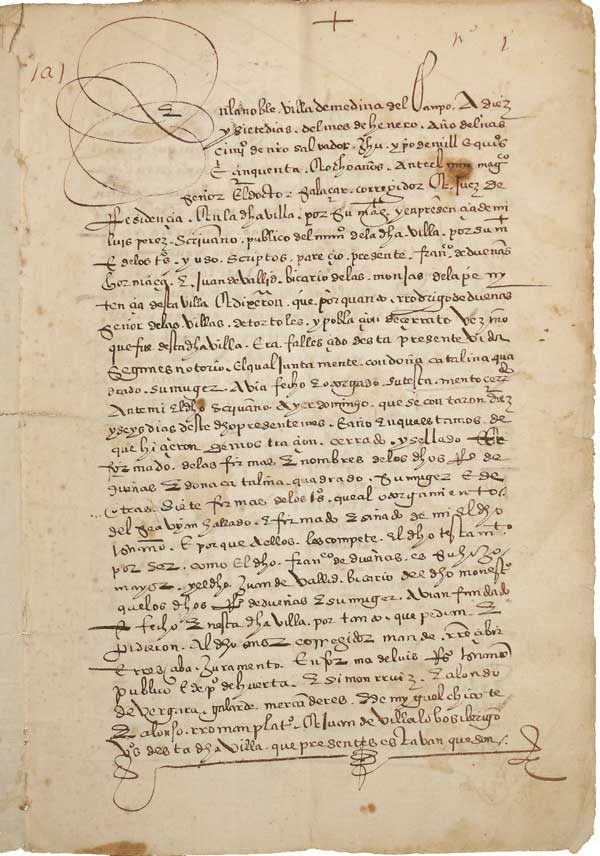 nº 1
1a1
En la noble villa de medina del Campo. A diez
y siete dias. del mes de henero. Año del nas
cimiº de nro salvador. Jhu. xpo de mill E quisº
E cinquenta. E ocho años. Ante el magco
Señor El dotor Salaçar. corregidor E Juez de
Residencia. En la dha villa. por Su magt. y en presencia de mi
luis perez. Scrivano. publico del numº de la dha villa. por su mt
E de los tsº. y uso. Scriptos. pareçio. presente. Franco de dueñas
hormaça. E Juan de Vallid. bicario de las. monjas. de la pe ny
tençia desta villa E dixeron. que. por quanto. rrodrigo de dueñas
Señor de las villas. de tortoles. y poblaçion de çerrato vezino
que fue desta dha villa. Era. fallesçido desta presente vida
Segun es notorio. El qual junta mente. con doña catalina qua
drado. su muger. Avia fecho E otorgado. su testa. mento cerrdº
Ante mi El dhº Scrivano. Ayer domingo. que se contaron. diez
y seys dias deste dho presente mes. E año En que estamos. de
que hiçieron demostraçion. cerrado. y sellado
firmado. de las firmas E nombres de los dhos Rº de
dueñas E dona catalina. quadrado. Su muger E de
otras. Siete firmas de los tsº. que al otorgamiento
del Se avyan hallado. E firmado E sinado de mi el dho
scrivano. E porque a ellos. les compete. El dho testamtº
por Ser. como El dho. franco de dueñas. es Su hijo
mayor. y el dho Juan de Vallid. bicario del dho monestº
que los dhos Rº de dueñas E su muger. Avian fundado
E fecho En esta dha villa. por tanto. que pedian. E
pidieron. Al dho señor corregidor mande. abrir
E rresciba. Juramento. En forma de luis prs scrivano
publico E de pº de huerta. E simon rruiz. E alonso
de vergara. galarde. mercaderes. E de myguel chicote
E alonso. rroman platº. E Juan de villalobos clerigo
vsº desta dha villa. que presentes estavan que son